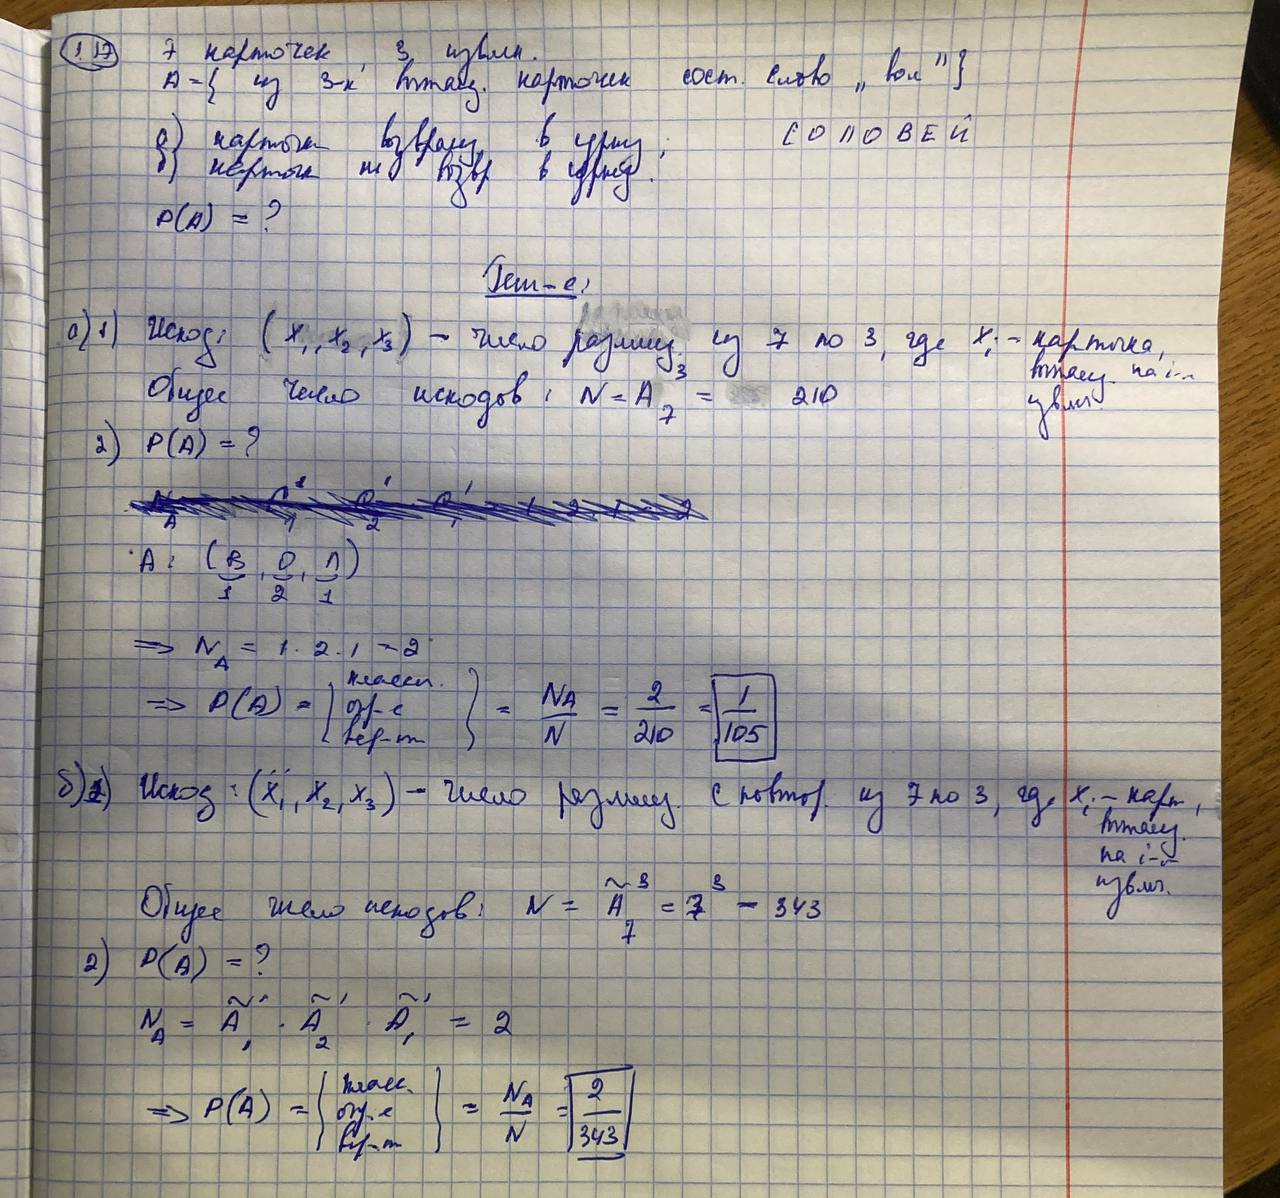 1.17 7 карточек, 3 извлк.
A = { из 3-х вытащ. карточек сост. слово „вол"}
а) карточки возвращ. в урну;
б) карточ не возвр в урну.
СОЛОВЕЙ
P(A) = ?
Реш-е:
а) 1) Исход: (x₁, x₂, x₃) – число размещ. из 7 по 3, где xᵢ – карточка, вытащ. на i-м извлеч.
Общее число исходов: N = A₇³ = 210
2) P(A) = ?
A: (В, О, Л)
1 2 1
⇒ N_A = 1 · 2 · 1 = 2
⇒ P(A) = { классич. опр-е вер-ти } = N_A/N = 2/210 = 1/105
б) 1) Исход: (x₁, x₂, x₃) – число размещ. с повтор. из 7 по 3, где xᵢ – карт, вытащ. на i-м извлеч.
Общее число исходов: N = Ã₇³ = 7³ = 343
2) P(A) = ?
N_A = Ã₁¹ · Ã₂¹ · Ã₁¹ = 2
⇒ P(A) = { класс. опр-е вер-ти } = N_A/N = 2/343